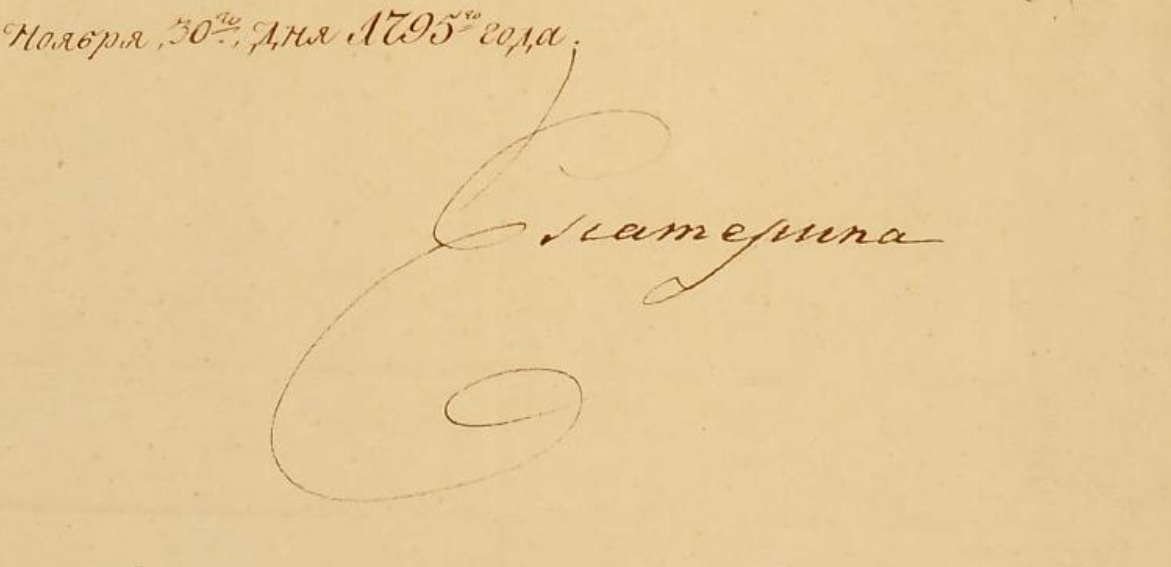 Ноября, 30го, дня 1795го года.
Екатерина